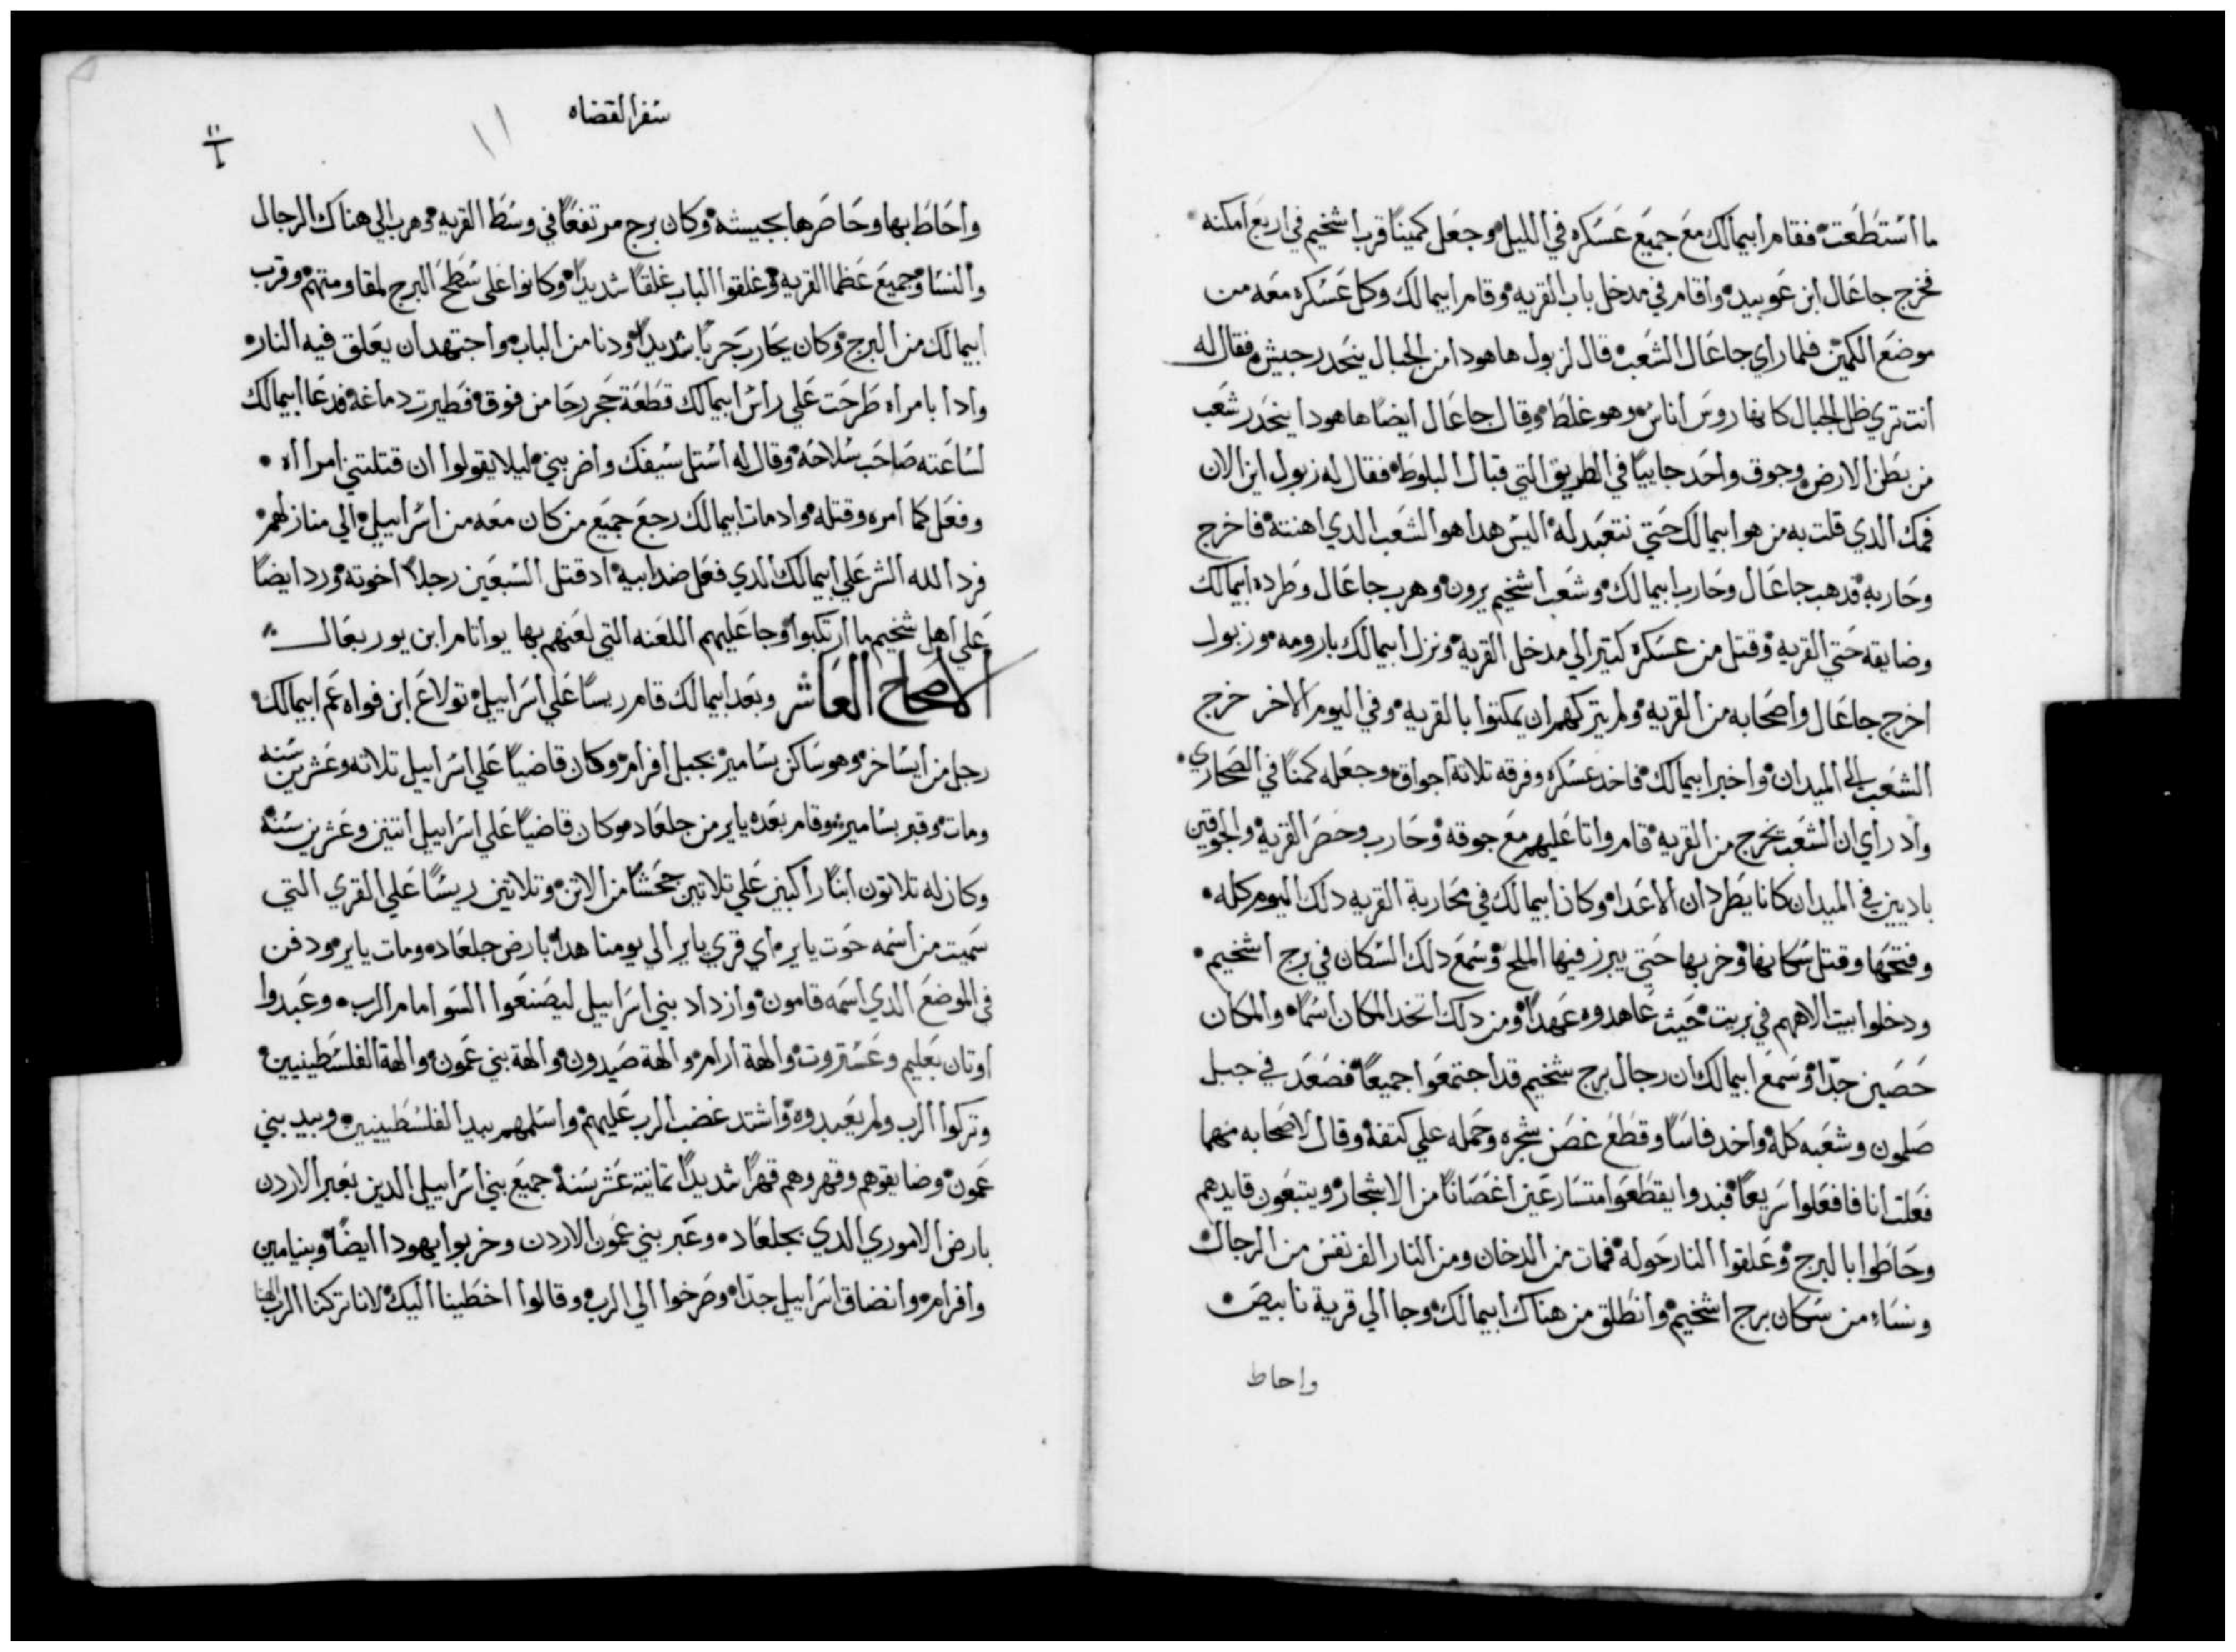 ما استطعت فقام ابيمالك مع جميع عسكره في الليل وجعل كمينًا قرب اشخيم في اربع امكنه
فخرج جاعال ابن عوبيد واقام في مدخل باب القريه وقام ابيمالك وكل عسكره معه من
موضع الكمين فلما راي جاعال الشعب قال لزبول ها هودا من الجبال ينحدر جيش فقال له
انت تري ظل الجبال كانها روس اناس وهو غلط وقال جاعال ايضًا ها هودا ينحدر شعب
من بطن الارض وجوق واحد جاييًا في الطريق التي قبال البلوط فقال له زبول اين الان
فمك الدي قلت به من هو ابيمالك حتي نتعبد له اليس هدا هو الشعب الدي اهنته فاخرج
وحاربه فدهب جاعال وحارب ابيمالك وشعب اشخيم يرون وهرب جاعال وطرده ابيمالك
وضايقه حتي القريه وقتل من عسكره كتير الي مدخل القريه ونزل ابيمالك بارومه وزبول
اخرج جاعال واصحابه من القريه ولم يتركهم ان يمكتوا بالقريه وفي اليوم الاخر خرج
الشعب الي الميدان واخبر ابيمالك فاخد عسكره وفرقه تلاتة اجواق وجعله كمنًا في الصحاري
واد راي ان الشعب يخرج من القريه قام واتا عليهم مع جوقه وحارب وحصر القريه والجوقين
باديين في الميدان كانا يطردان الاعدا وكان ابيمالك في محاربة القريه دلك اليوم كله
وفتحها وقتل سكانها وخربها حتي يبرز فيها الملح وسمع دلك السكان في برج اشخيم
ودخلوا بيت الاههم في بريت حيث عاهدوه عهدًا ومن دلك اتخد المكان اسما والمكان
حصين جدًا وسمع ابيمالك ان رجال برج شخيم قد اجتمعوا جميعًا فصعد في جبل
صلمون وشعبه كله واخد فاسًا وقطع غصن شجره وحمله علي كتفه وقال لاصحابه مهما
فعلت انا فافعلوا سريعًا فبدوا يقطعوا متسارعين اغصانًا من الاشجار ويتبعون قايدهم
وحاطوا بالبرج وعلقوا النار حوله فمات من الدخان ومن النار الف نفس من الرجال
ونساء من سكان برج اشخيم وانطلق من هناك ابيمالك وجا الي قرية تابيص
واحاط
سفر القضاه
١١
واحاط بها وحاصرها بجيشه وكان برج مرتفعًا في وسط القريه وهرب الي هناك الرجال
والنسا وجميع عظما القريه وغلقوا الباب غلقًا شديدًا وكانوا علي سطح البرج لمقاومتهم وقرب
ابيمالك من البرج وكان يحارب حربًا شديدًا ودنا من الباب واجتهد ان يعلق فيه النار
وادا بامراه طرحت علي راس ابيمالك قطعة حجر رحا من فوق فطيرت دماغه فدعا ابيمالك
لساعته صاحب سلاحه وقال له استل سيفك واضربني ليلا يقولوا ان قتلتني امراه
وفعل كما امره وقتله واد مات ابيمالك رجع جميع من كان معه من اسراييل الي منازلهم
فرد الله الشر علي ابيمالك الدي فعل ضد ابيه اد قتل السبعين رجلاً اخوته ورد ايضًا
علي اهل شخيم ما ارتكبوا وجا عليهم اللعنه التي لعنهم بها يواتام ابن يوربعال
الاصحاح العاشر وبعد ابيمالك قام ريسًا علي اسراييل تولاع ابن فواه عم ابيمالك
رجل من ايساخر وهو ساكن بسامير بجبل افرام وكان قاضيًا علي اسراييل تلاته وعشرين سنه
ومات وقبر بسامير وقام بعده ياير من جلعاد وكان قاضيًا علي اسراييل اتنين وعشرين سنة
وكان له تلاتون ابنًا راكبين علي تلاتين جحشًا من الاتن وتلاتين ريسًا علي القري التي
سميت من اسمه حوت ياير اي قري ياير الي يومنا هدا بارض جلعاد ومات ياير ودفن
في الموضع الدي اسمه قامون وازداد بني اسراييل ليصنعوا السوا امام الرب وعبدوا
اوتان بعليم وعستروت والهة ارام والهة صيدون والهة بني عمون والهة الفلسطينيين
وتركوا الرب ولم يعبدوه واشتد غضب الرب عليهم واسلمهم بيد الفلسطينيين وبيد بني
عمون وضايقوهم وقهروهم قهرًا شديدًا تمانية عشر سنة جميع بني اسراييل الدين بعبر الاردن
بارض الاموري الدي بجلعاد وعبر بني عمون الاردن وخربوا يهودا ايضًا وبنيامين
وافرام وانضاق اسراييل جدًا وصرخوا الي الرب وقالوا اخطينا اليك لانا تركنا الرب الهنا